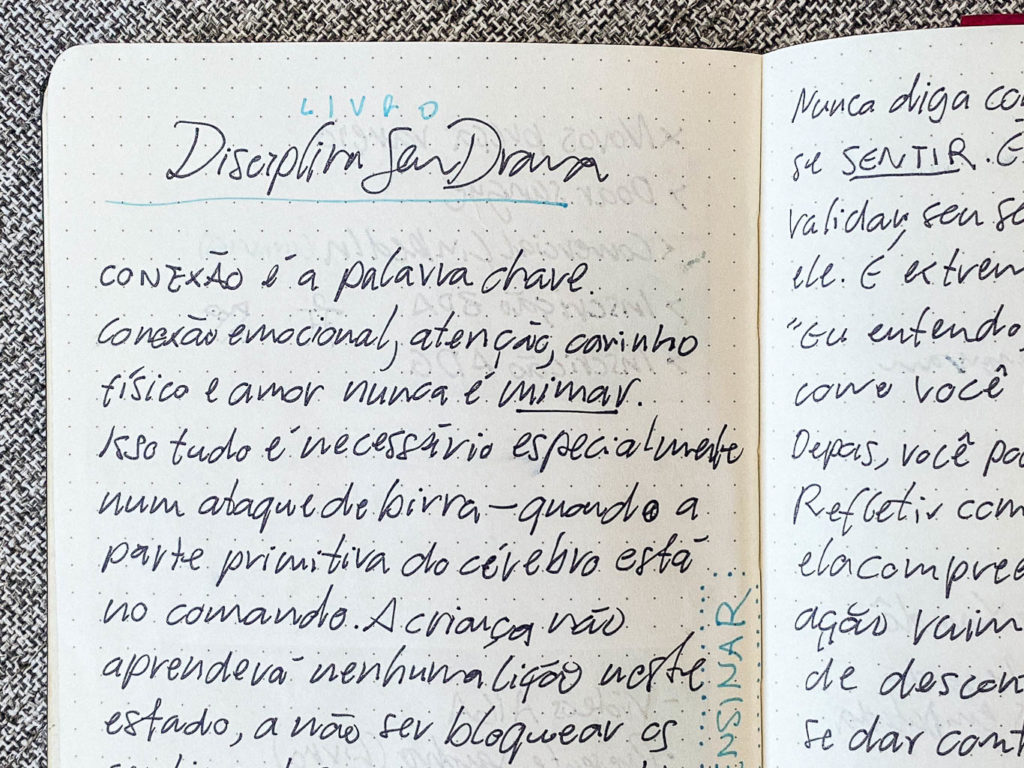 LIVRO
Disciplina Sem Drama
CONEXÃO é a palavra chave.
Conexão emocional, atenção, carinho
físico e amor nunca é mimar.
Isso tudo é necessário especialmente
num ataque de birra - quando a
parte primitiva do cérebro está
no comando. A criança não
aprenderá nenhuma lição neste
estado, a não ser bloquear os
ENSINAR:
Nunca diga co
se SENTIR. É
validar, seu se
ele. É extrem
"Eu entendo,
come você
Depois, você po
Refletir com
ela compree
ação vai m
de descon
se dar cont